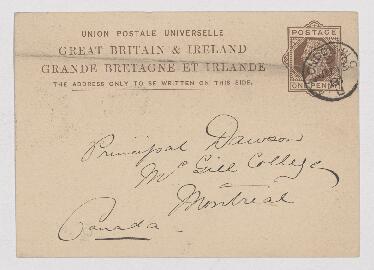 UNION POSTALE UNIVERSELLE
GREAT BRITAIN & IRELAND
GRANDE BRETAGNE ET IRLANDE
THE ADDRESS ONLY TO BE WRITTEN ON THIS SIDE.
POSTAGE
ONE PENNY
Principal Dawson
Mc Gill College
Montreal
Canada